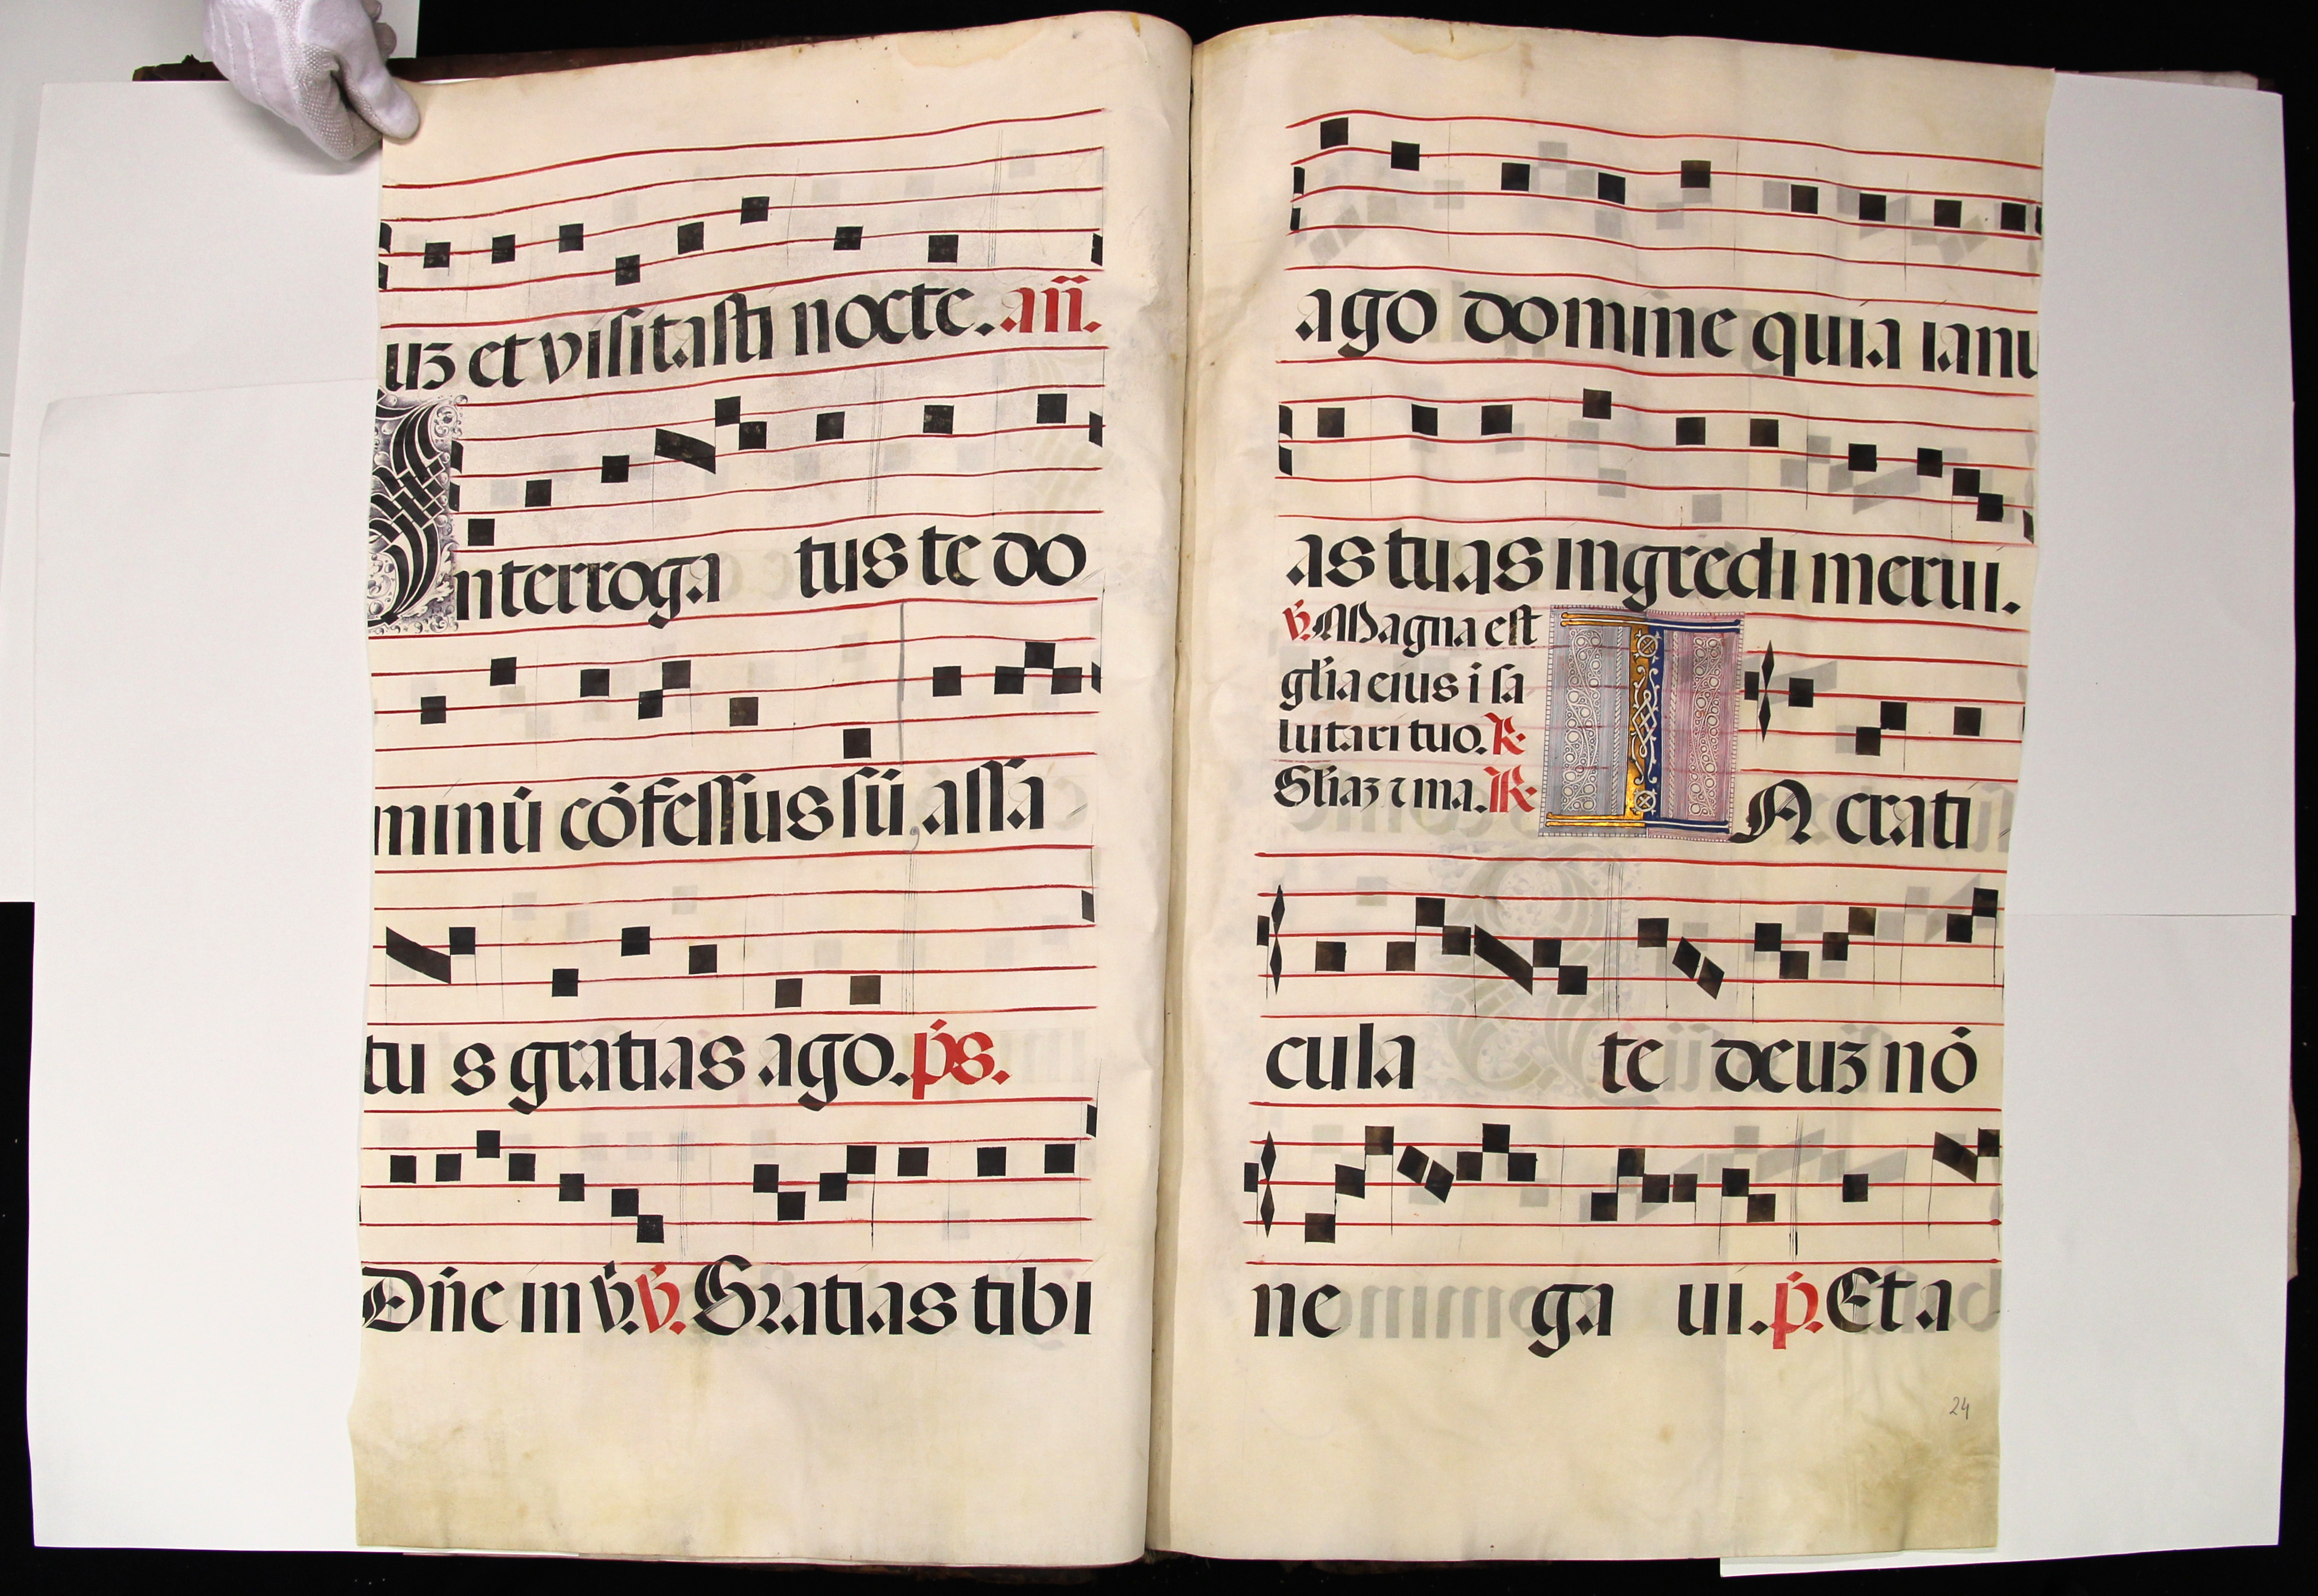 uz et visitasti nocte. añ.
Interroga tus te do
minū cōfessus sū assa
tus gratias ago. ps.
Dñe in v̄. v̄. Gratias tibi
ago domine quia ianu
as tuas ingredi merui.
v̄. Magna est
glia eius i sa
lutari tuo. R.
Gliaz ⁊ ma. R.
IN crati
cula te deuz nō
ne ga ui. p̄. Et a
24